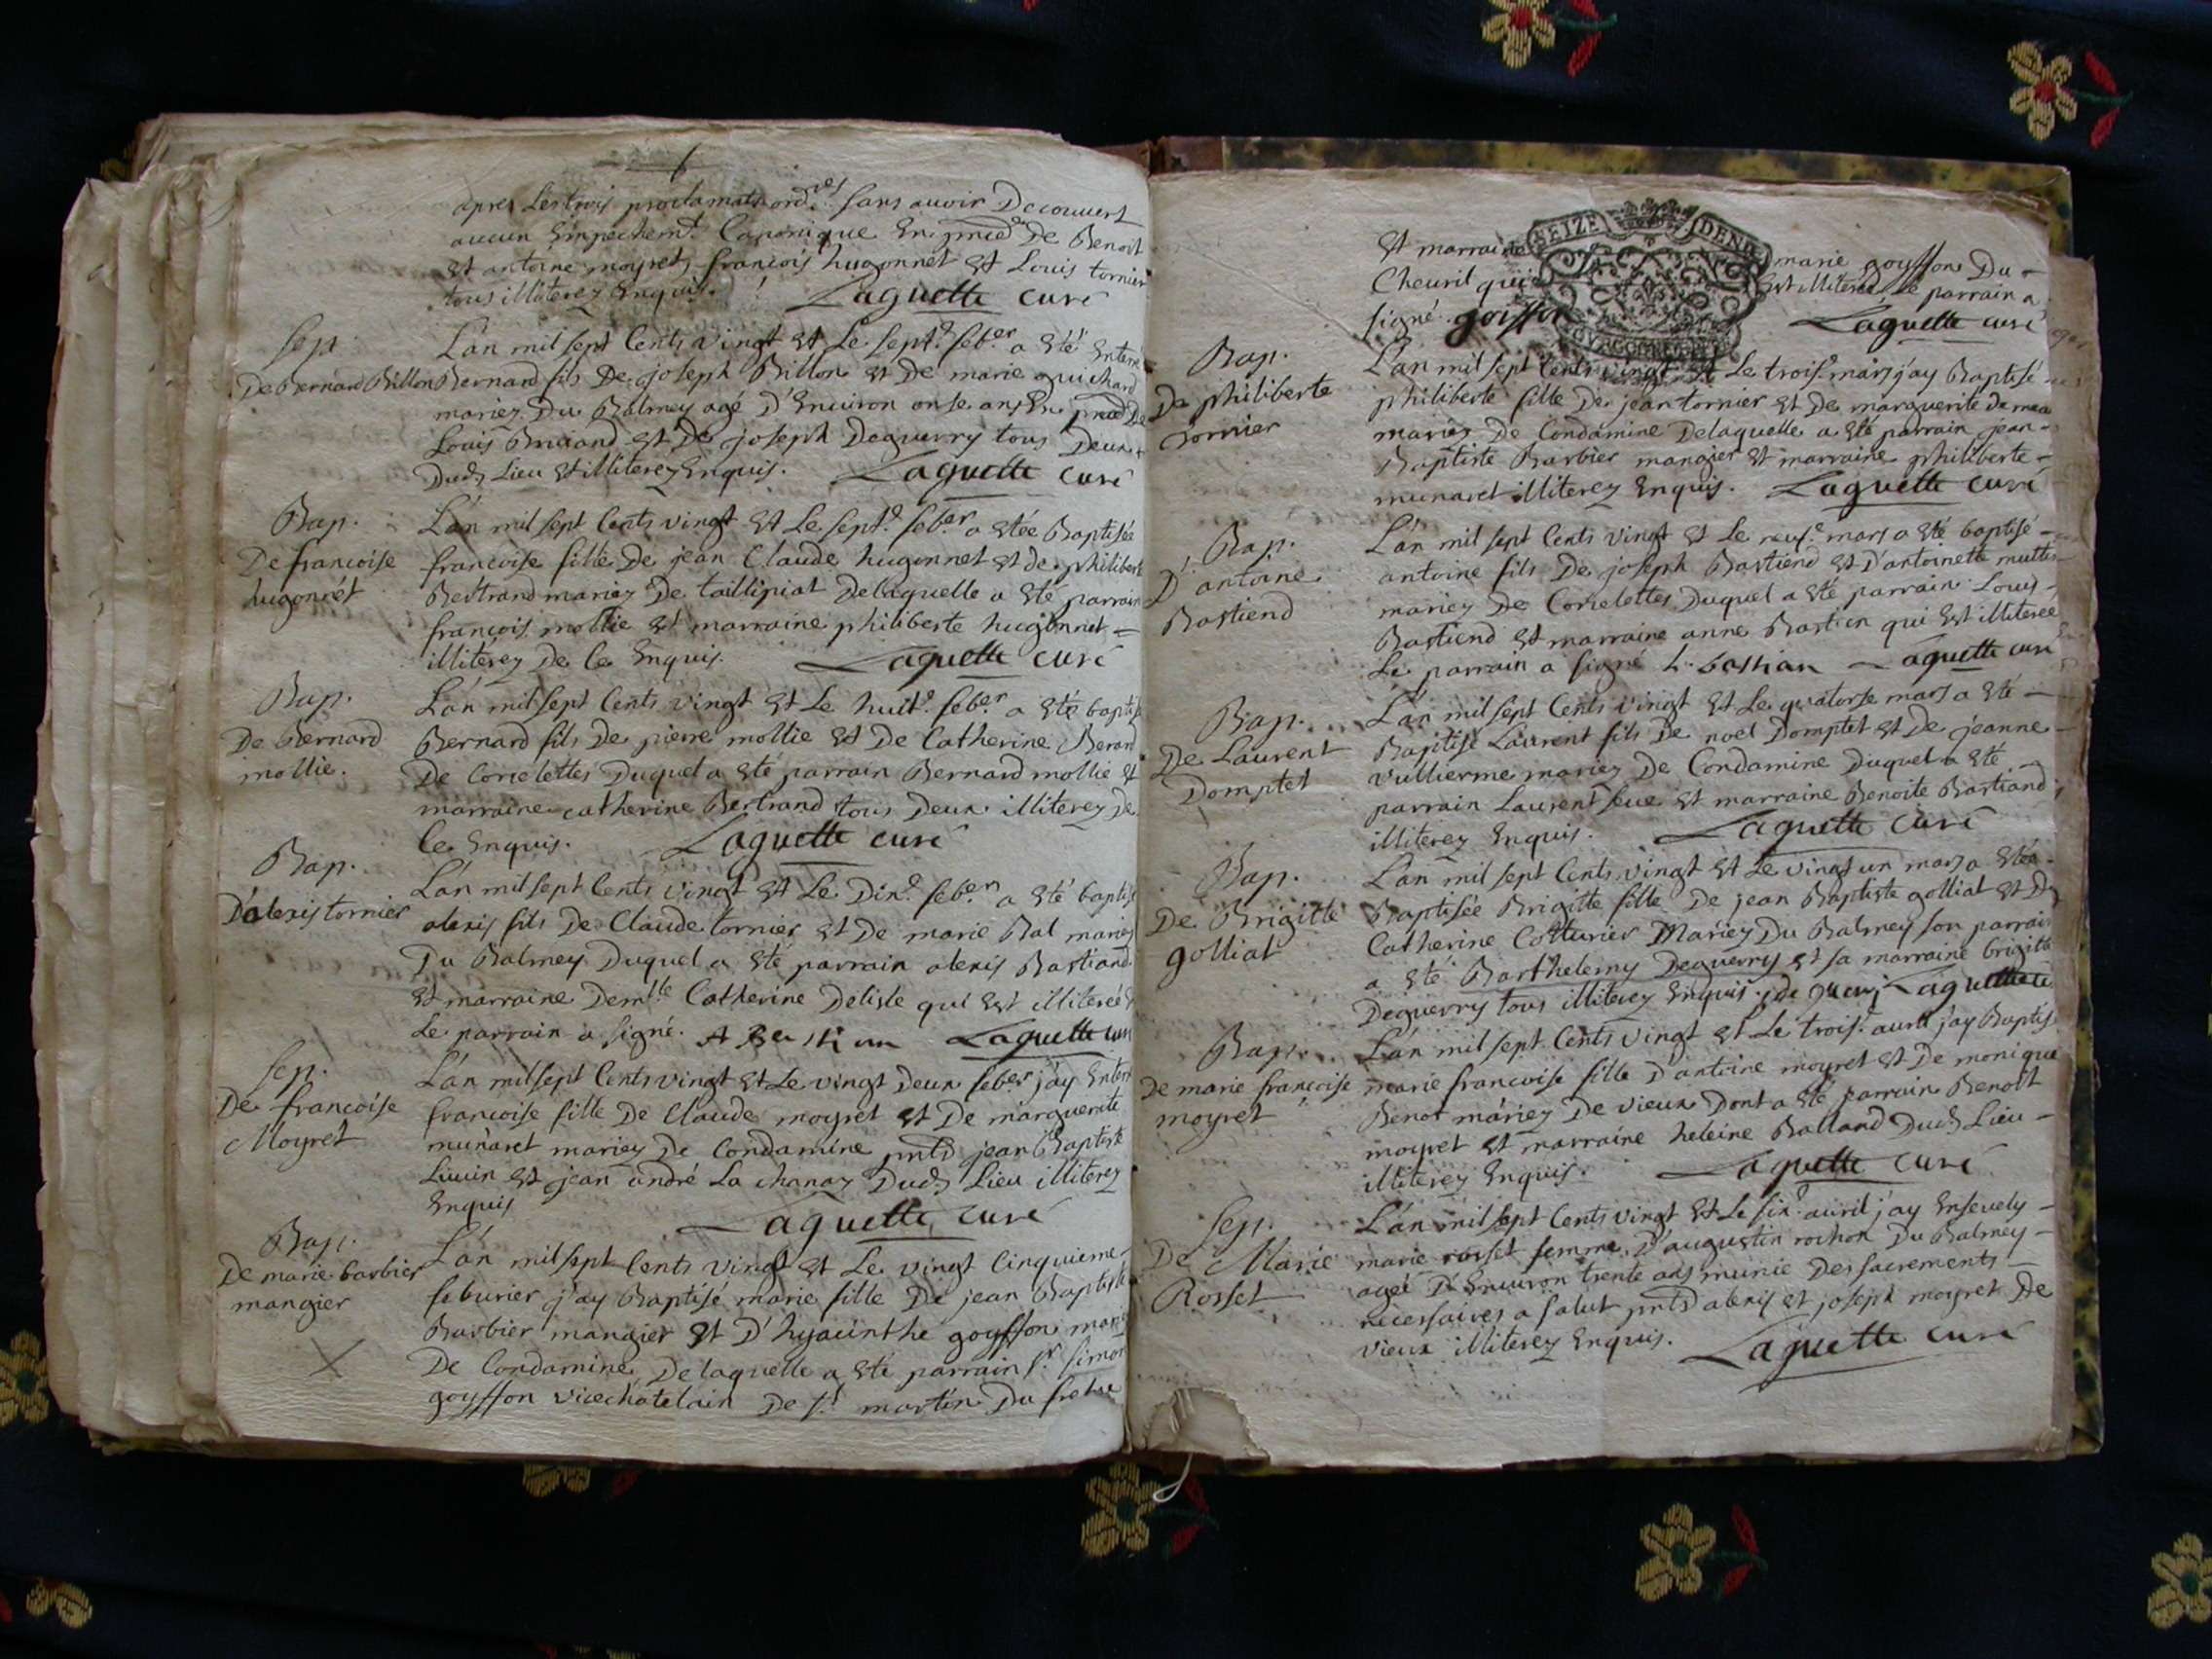 apres Les trois proclamats ord.res sans avoir Decouvert
aucun Empechem.t Canonique En De Benoit
Et antoine moyret, francois hugonnet Et Louis tornier
tous illiterez Enquis. Laguette curé
Sep.
De Bernard Billon
L'an mil sept Cents vingt Et Le sept.e feb.er a Eté Enterré
Bernard fils De joseph Billon Et De marie guichard
mariez Du Balmey agé D'Environ onse ans En De
Louis Et De joseph Deguerry tous Deux
Dud. Lieu Et illiterez Enquis. Laguette curé
Bap.
De francoise
hugonnet
L'an mil sept Cents vingt Et Le sept.e feb.er a Etée Baptisée
francoise fille De jean Claude hugonnet Et de philiberte
Bertrand mariez De taillipiat Delaquelle a Eté parrain
francois mollie Et marraine philiberte hugonnet =
illiterez De Ce Enquis. Laguette curé
Bap.
De Bernard
mollie.
L'an mil sept Cents vingt Et Le huit.e feb.er a Eté baptisé
Bernard fils De pierre mollie Et De Catherine Berand
De Corcelettes Duquel a Eté parrain Bernard mollie Et
marraine catherine Bertrand tous Deux illiterez De
Ce Enquis. Laguette curé
Bap.
D'alexis tornier
L'an mil sept Cents vingt Et Le Dix.e feb.er a Eté baptisé
alexis fils De Claude tornier Et De marie Bal mariez
Du Balmey Duquel a Eté parrain alexis Bastiand
Et marraine Dem.lle Catherine Delisle qui Est illiterée
Le parrain a signé. A Bastian Laguette curé
Sep.
De francoise
Moyret
L'an mil sept Cents vingt Et Le vingt Deux feb.er j'ay Enterré
francoise fille De Claude moyret Et De marguerite
munaret mariez De Condamine pnts jean Baptiste
Et jean andré La chanaz Dud. Lieu illiterez
Enquis
Laguette, curé
Bap.
De marie barbier
mangier
L'an mil sept Cents vingt Et Le vingt Cinquieme
feburier j'ay Baptisé marie fille De jean Baptiste
Barbier mangier Et D'hyacinthe goyffon mariez
De Condamine Delaquelle a Eté parrain s.r simon
goyffon vicechatelain De s.t martin Du fresne
Et marraine marie goyffon Du
Cheuril qui Est illiterée, Le parrain a
signé. goiffon Laguette curé
SEIZE DEN
Bap.
De philiberte
tornier
L'an mil sept Cents vingt Et Le trois.e mars j'ay Baptisé
philiberte fille De jean tornier Et De marguerite
mariez De Condamine Delaquelle a Eté parrain jean =
Baptiste Barbier mangier Et marraine philiberte =
munaret illiterez Enquis. Laguette curé
Bap.
D'antoine
Bastiend
L'an mil sept Cents vingt Et Le neuf.e mars a Eté baptisé
antoine fils De joseph Bastiend Et D'antoinette
mariez De Corcelettes Duquel a Eté parrain Louis
Bastiend Et marraine anne Bastien qui Est illiterée
Le parrain a signé L. bastian Laguette curé
Bap.
De Laurent
Domptet
L'an mil sept Cents vingt Et Le quatorse mars a Eté
Baptisé Laurent fils De noel Domptet Et De jeanne
vullierme mariez De Condamine Duquel a Eté
parrain Laurent Et marraine Benoite Bastiand
illiterez Enquis. Laguette curé
Bap.
De Brigitte
golliat
L'an mil sept Cents vingt Et Le vingt un mars a Etée
Baptisée Brigitte fille De jean Baptiste golliat Et De
Catherine Cotturier Mariez Du Balmey son parrain
a Eté Barthelemy Deguerry Et sa marraine brigitte
Deguerry tous illiterez Enquis. Laguette
Bap.
De marie francoise
moyret
L'an mil sept Cents vingt Et Le trois.e auril j'ay Baptisé
marie francoise fille D'antoine moyret Et De monique
Benot mariez De vieux Dont a Eté parrain Benoit
moyret Et marraine heleine Balland Dud. Lieu
illiterez Enquis. Laguette curé
Sep.
De Marie
Rosset
L'an mil sept Cents vingt Et Le six.e auril j'ay Enseuely
marie rosset femme D'augustin rochon Du Balmey
agée D'Enuiron trente ans munie Des sacrements
necessaires a salut pnts alexis Et joseph moyret De
vieux illiterez Enquis. Laguette curé